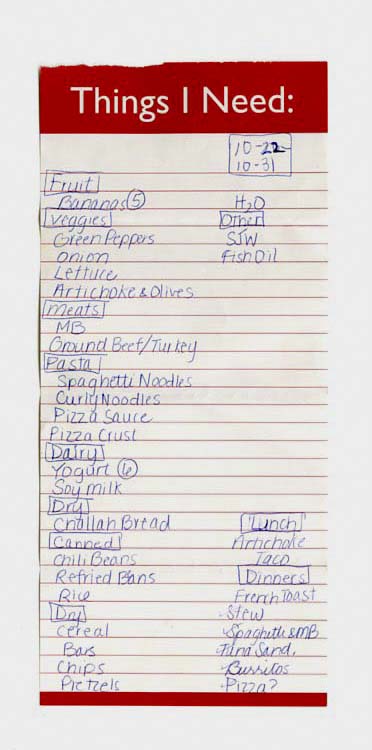 Things I Need:
10-22
10-31
Fruit
Bananas 5
H2O
Veggies
Other
Green Peppers
SJW
onion
Fish Oil
Lettuce
Artichoke & Olives
meats
MB
Ground Beef/Turkey
Pasta
Spaghetti Noodles
Curly Noodles
Pizza Sauce
Pizza Crust
Dairy
Yogurt 6
Soy milk
Dry
Challah Bread
"Lunch"
Canned
Artichoke
Chili Beans
Taco
Refried Bans
Dinners
Rice
French Toast
Dry
-Stew
Cereal
-Spaghetti & MB
Bars
-Tuna Sand.
Chips
-Burritos
Pretzels
-Pizza?